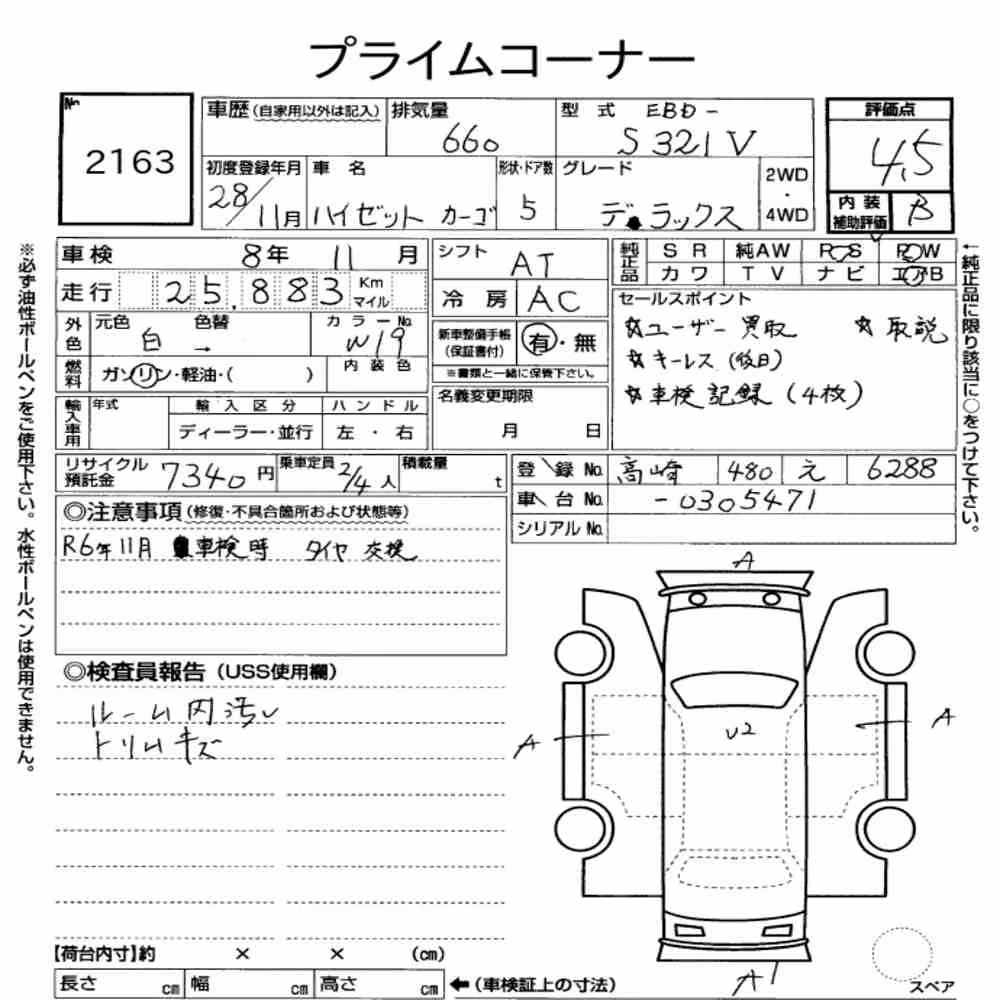 プライムコーナー
No. 2163
車歴(自家用以外は記入) 排気量 660 型式 EBD- S321V
評価点 4.5
初度登録年月 28/11月 車名 ハイゼット カーゴ 形状・ドア数 5 グレード デラックス 2WD・4WD
内装補助評価 B
車検 8年 11月 シフト AT
純正品 SR 純AW PS PW
カワ TV ナビ エアB
走行 25,883 Km マイル 冷房 AC
外色 元色 白 色替 → カラーNo. W19
新車整備手帳(保証書付) 有・無
※書類と一緒に保管下さい。
セールスポイント
☆ユーザー買取 ☆取説
☆キーレス(後日)
☆車検記録(4枚)
燃料 ガソリン・軽油・( ) 内装色
輸入車用 年式 輸入区分 ハンドル
ディーラー・並行 左・右
名義変更期限 月 日
リサイクル預託金 7340円 乗車定員 2/4人 積載量 t
登録No. 高崎 480 え 6288
車台No. -0305471
シリアルNo.
◎注意事項(修復・不具合箇所および状態等)
R6年11月 車検時 タイヤ交換
◎検査員報告(USS使用欄)
ルーム内汚レ
トリムキズ
A
A
U2
A
A1
スペア
【荷台内寸】約 × × (cm)
長さ cm 幅 cm 高さ cm ←(車検証上の寸法)
※必ず油性ボールペンをご使用下さい。水性ボールペンは使用できません。
←純正品に限り該当に○をつけて下さい。